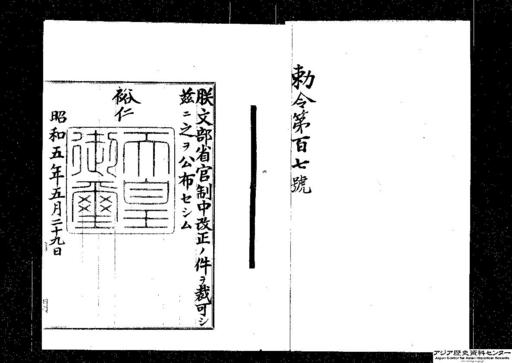 勅令第百七號
朕文部省官制中改正ノ件ヲ裁可シ
茲ニ之ヲ公布セシム
裕仁
天皇御璽
昭和五年五月二十九日
アジア歴史資料センター
Japan Center for Asian Historical Records